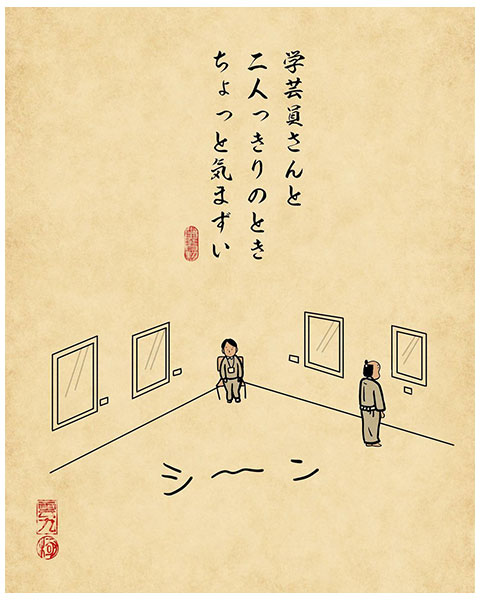 学芸員さんと
二人っきりのとき
ちょっと気まずい
シ〜ン